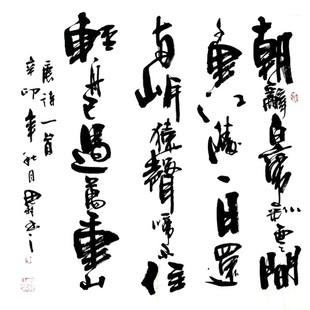 朝辭白帝彩雲間
千里江陵一日還
兩岸猿聲啼不住
輕舟已過萬重山
唐诗一首
辛卯年秋月